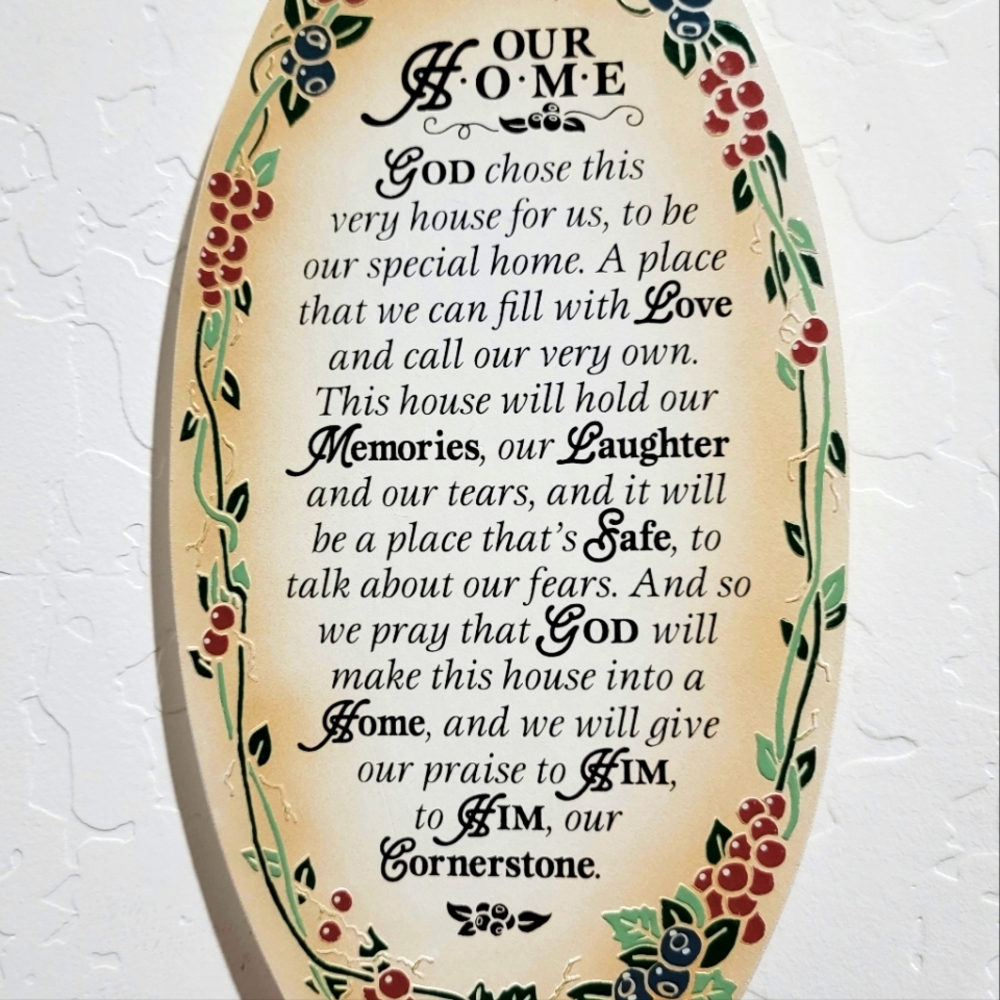 OUR
H·O·M·E
GOD chose this
very house for us, to be
our special home. A place
that we can fill with Love
and call our very own.
This house will hold our
Memories, our Laughter
and our tears, and it will
be a place that's Safe, to
talk about our fears. And so
we pray that GOD will
make this house into a
Home, and we will give
our praise to HIM,
to HIM, our
Cornerstone.